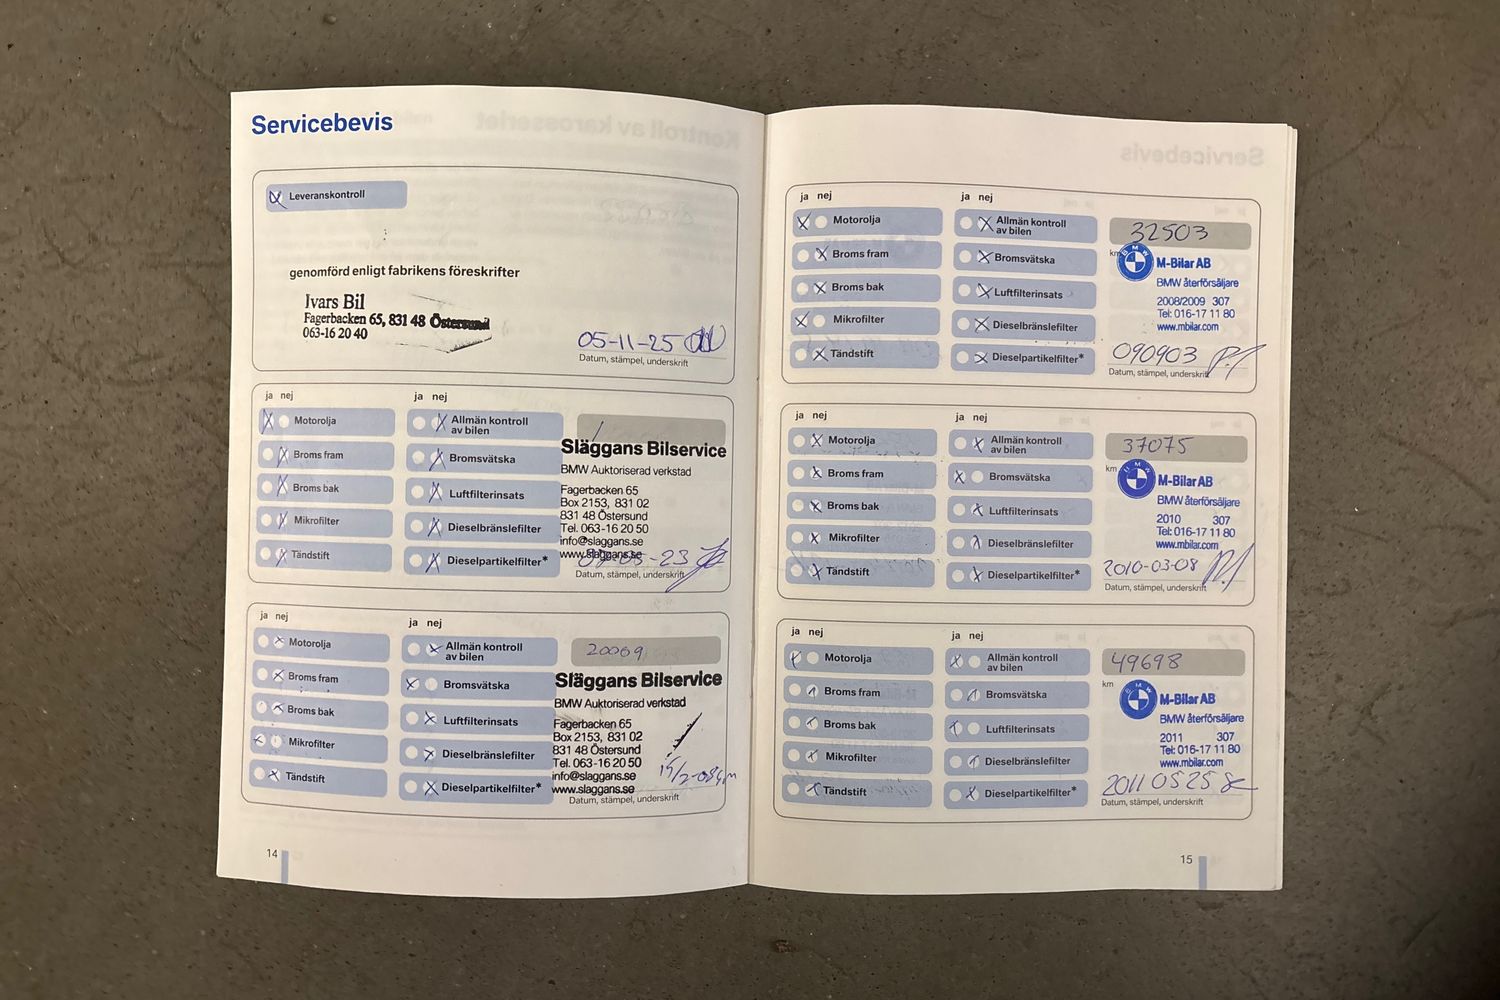 Servicebevis
Leveranskontroll
genomförd enligt fabrikens föreskrifter
Ivars Bil
Fagerbacken 65, 831 48 Östersund
063-16 20 40
05-11-25
Datum, stämpel, underskrift
ja nej
ja nej
Motorolja
Allmän kontroll
av bilen
Broms fram
Bromsvätska
Broms bak
Luftfilterinsats
Mikrofilter
Dieselbränslefilter
Tändstift
Dieselpartikelfilter*
Släggans Bilservice
BMW Auktoriserad verkstad
Fagerbacken 65
Box 2153, 831 02
831 48 Östersund
Tel. 063-16 20 50
info@slaggans.se
www.slaggans.se
-23
Datum, stämpel, underskrift
ja nej
ja nej
Motorolja
Allmän kontroll
av bilen
Broms fram
Bromsvätska
Broms bak
Luftfilterinsats
Mikrofilter
Dieselbränslefilter
Tändstift
Dieselpartikelfilter*
20069
Släggans Bilservice
BMW Auktoriserad verkstad
Fagerbacken 65
Box 2153, 831 02
831 48 Östersund
Tel. 063-16 20 50
info@slaggans.se
www.slaggans.se
Datum, stämpel, underskrift
14
ja nej
ja nej
Motorolja
Allmän kontroll
av bilen
Broms fram
Bromsvätska
Broms bak
Luftfilterinsats
Mikrofilter
Dieselbränslefilter
Tändstift
Dieselpartikelfilter*
32503
km
BMW
M-Bilar AB
BMW återförsäljare
2008/2009 307
Tel: 016-17 11 80
www.mbilar.com
090903
Datum, stämpel, underskrift
ja nej
ja nej
Motorolja
Allmän kontroll
av bilen
Broms fram
Bromsvätska
Broms bak
Luftfilterinsats
Mikrofilter
Dieselbränslefilter
Tändstift
Dieselpartikelfilter*
37075
km
BMW
M-Bilar AB
BMW återförsäljare
2010 307
Tel: 016-17 11 80
www.mbilar.com
2010-03-08
Datum, stämpel, underskrift
ja nej
ja nej
Motorolja
Allmän kontroll
av bilen
Broms fram
Bromsvätska
Broms bak
Luftfilterinsats
Mikrofilter
Dieselbränslefilter
Tändstift
Dieselpartikelfilter*
49698
km
BMW
M-Bilar AB
BMW återförsäljare
2011 307
Tel: 016-17 11 80
www.mbilar.com
2011 05 25
Datum, stämpel, underskrift
15